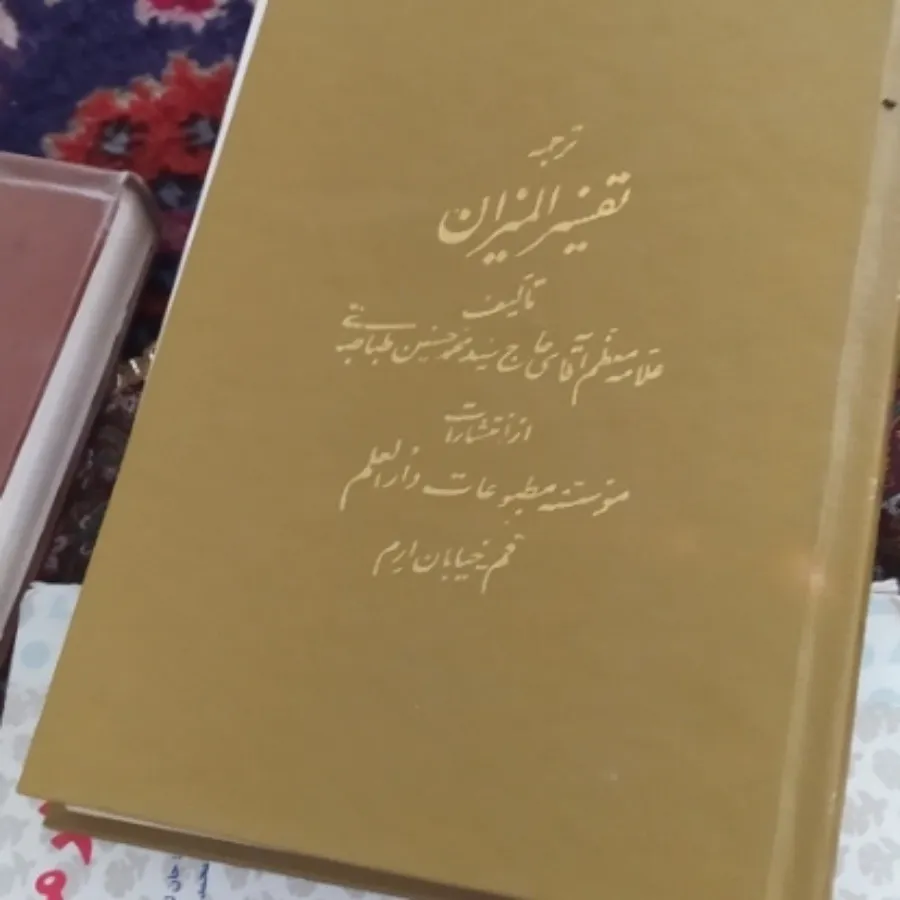 ترجمه
تفسیر المیزان
تألیف
علامه معظم آقای حاج سید محمد حسین طباطبائی
از انتشارات
مؤسسه مطبوعات دار العلم
قم خیابان ارم